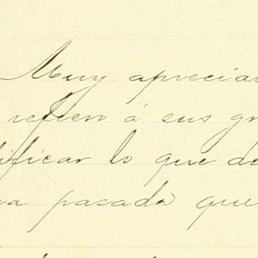 Muy aprecia
refiero á sus gr
ificar lo que de
a pasada que